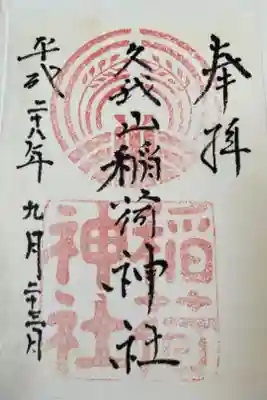 奉拝
久我山稲荷神社
平成二十八年九月二十二日
稲荷
神社